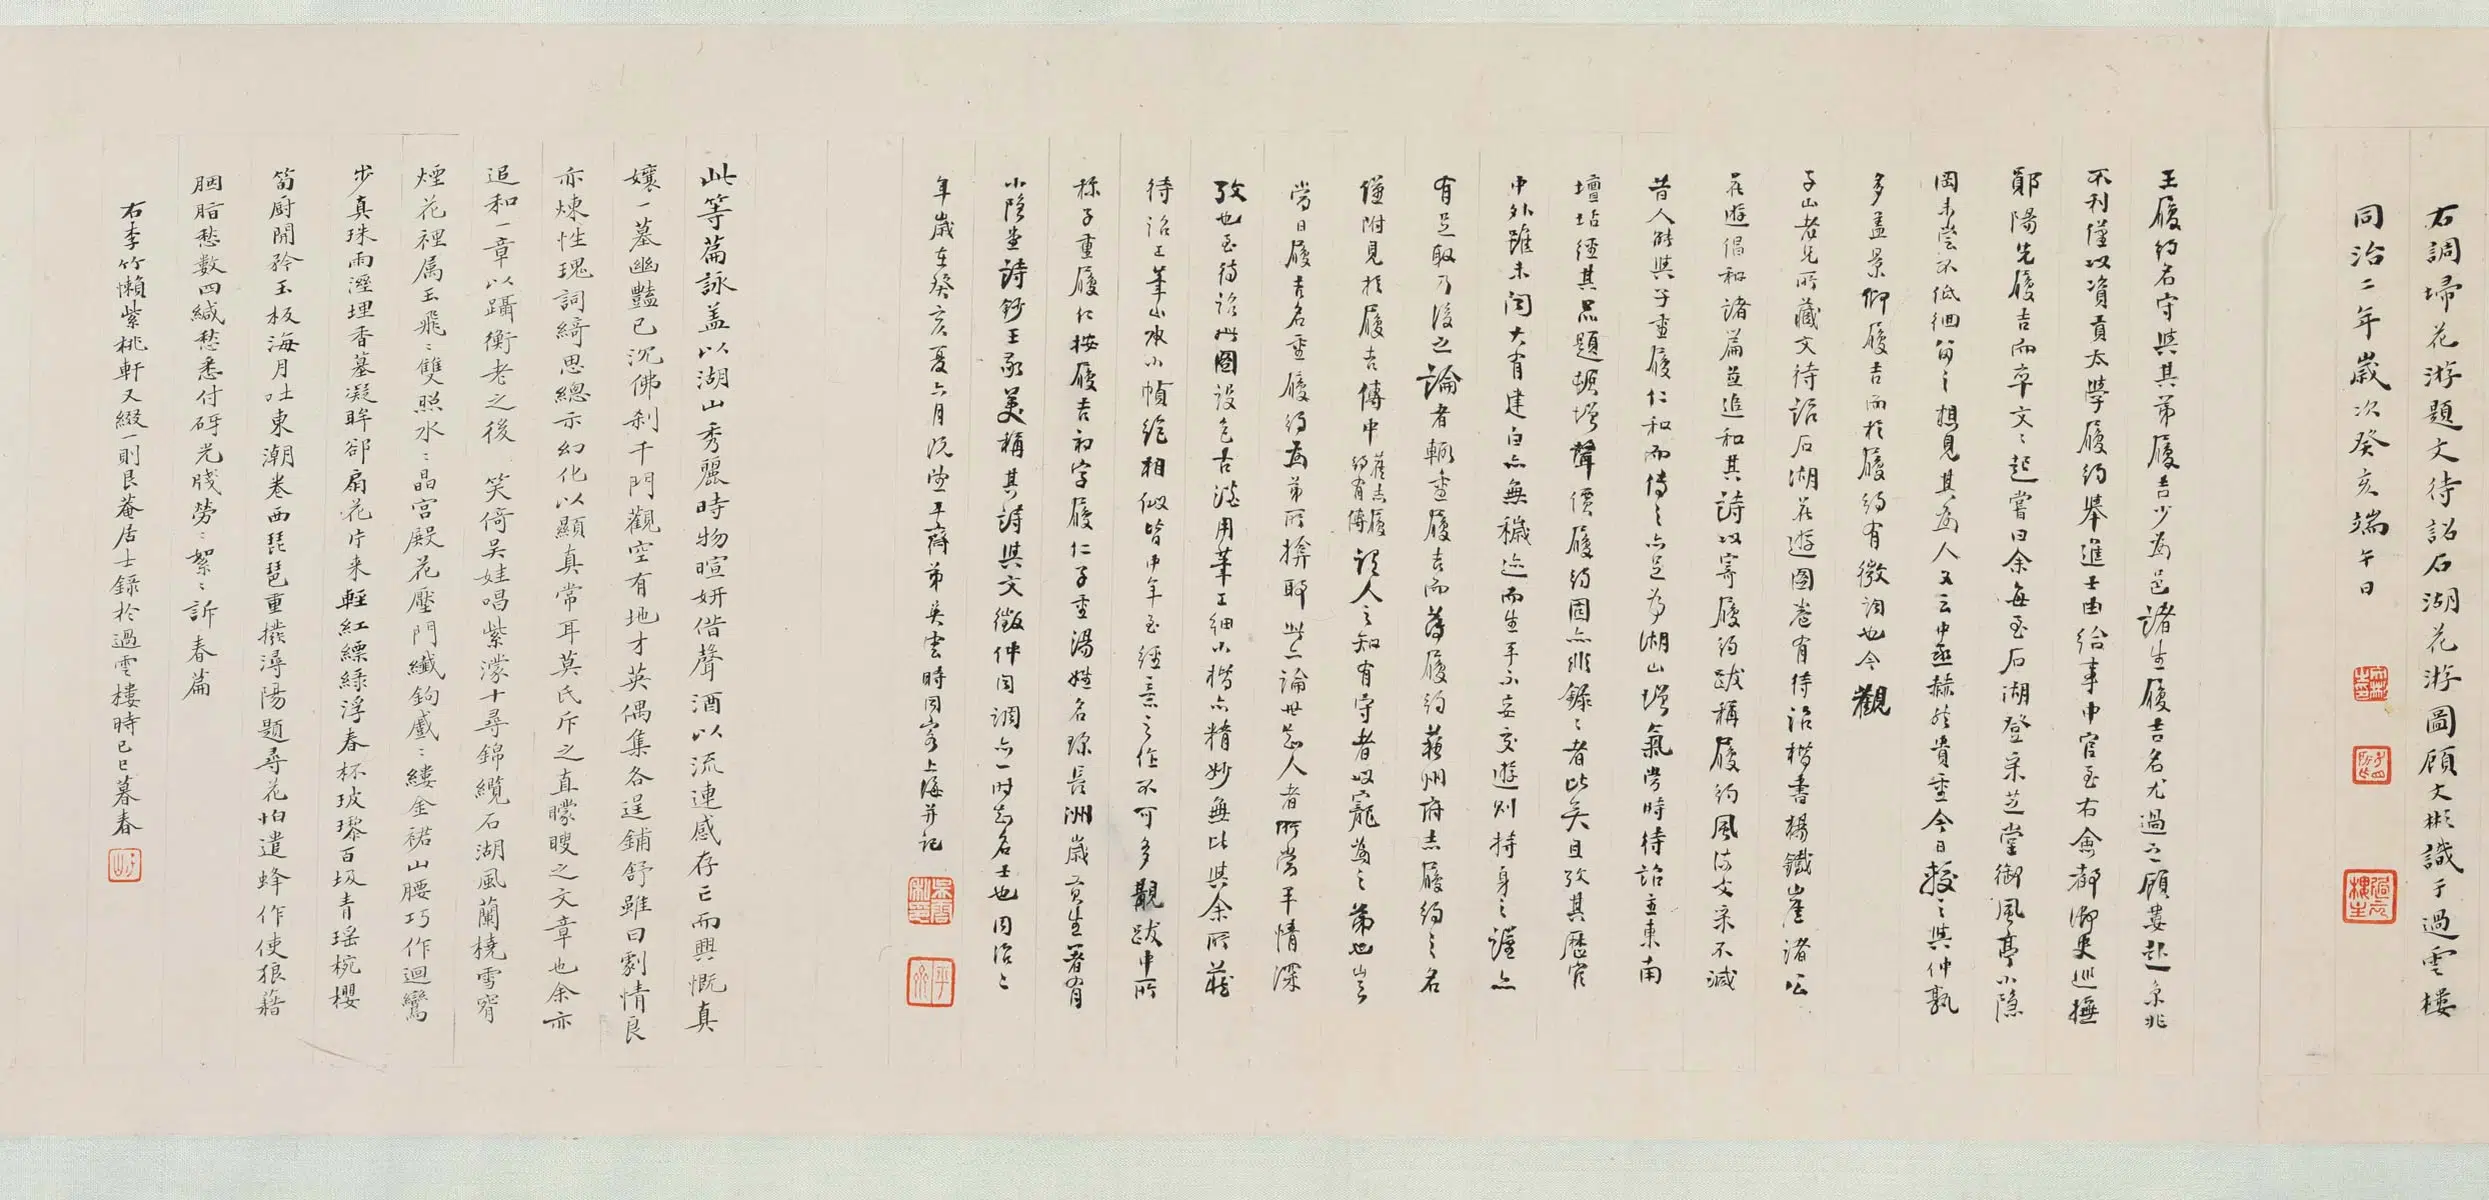 右調埽花游題文待詔石湖花游圖顧文彬識于過雲樓
同治二年歲次癸亥端午日
王履約名守與其弟履吉少為邑諸生履吉名尤過之顧屢赴京兆
不利僅以資貢太學履約舉進士由給事中官至右僉都御史巡撫
鄖陽先履吉而卒文文起嘗曰余每至石湖登采芝堂御風亭小隱
岡未嘗不低徊留之想見其為人又云中丞赫然貴重今日較之與仲孰
多蓋景仰履吉而於履約有微詞也今觀
子山老兄所藏文待詔石湖花遊圖卷有待詔楷書楊鐵崖諸公
花遊倡和諸篇並追和其詩以寄履約跋稱履約風流文采不減
昔人能與子重履仁和而傳之亦足為湖山增氣當時待詔主東南
壇坫經其品題頓增聲價履約固亦非錄錄者比矣且攷其歷官
中外雖未聞大有建白亦無穢迹而生平不妄交遊則持身之謹亦
有足取乃後之論者輒重履吉而薄履約蘇州府志履約之名
僅附見於履吉傳中舊志履約有傳 誤人之知有守者以寵為之弟也豈
當日履吉名重履約為弟所揜耶此亦論世知人者所當平情深
攷也至待詔此圖設色古澹用筆工細小楷亦精妙無比與余所藏
待詔工筆山水小幀絕相似皆中年至經意之作不可多覯跋中所
稱子重履仁按履吉初字履仁子重湯姓名珍長洲歲貢生著有
小隱堂詩鈔王承美稱其詩與文徵仲同調亦一時知名士也同治二
年歲在癸亥夏六月望平齋弟吳雲時同客上海并記
此等篇詠盖以湖山秀麗時物暄妍借聲酒以流連感存亡而興慨真
孃一墓幽豔已沉佛刹千門觀空有地才英偶集各逞鋪舒雖曰劉情良
亦煉性瑰詞綺思總示幻化以顯真常耳莫氏斥之直矇瞍之文章也余亦
追和一章以躡衡老之後 笑倚吳娃唱紫濛十尋錦纜石湖風蘭橈雪窅
煙花裡屬玉飛飛雙照水水晶宮殿花壓門纖鉤戲戲縷金裙山腰巧作迴鸞
步真珠雨溼埋香墓凝眸郤扇花片来輕紅縹綠浮春杯玻瓈百圾青瑤椀櫻
筍厨開矜玉板海月吐東潮卷西琵琶重撥潯陽題尋花怕遣蜂作使狼藉
胭脂愁數四緘愁悉付砑光牋勞勞絮絮訴春篇
右李竹嬾紫桃軒又綴一則艮菴居士錄於過雲樓時己巳暮春